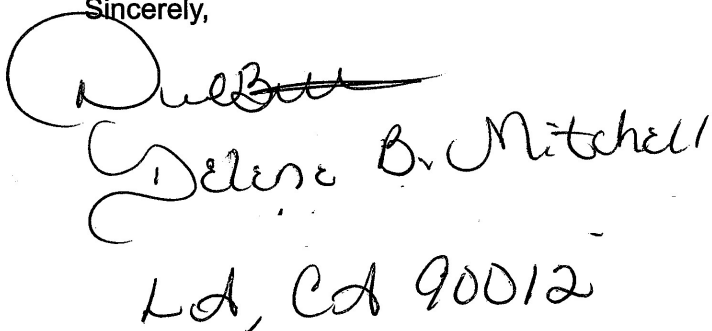 Sincerely,
Delese B. Mitchell
LA, CA 90012